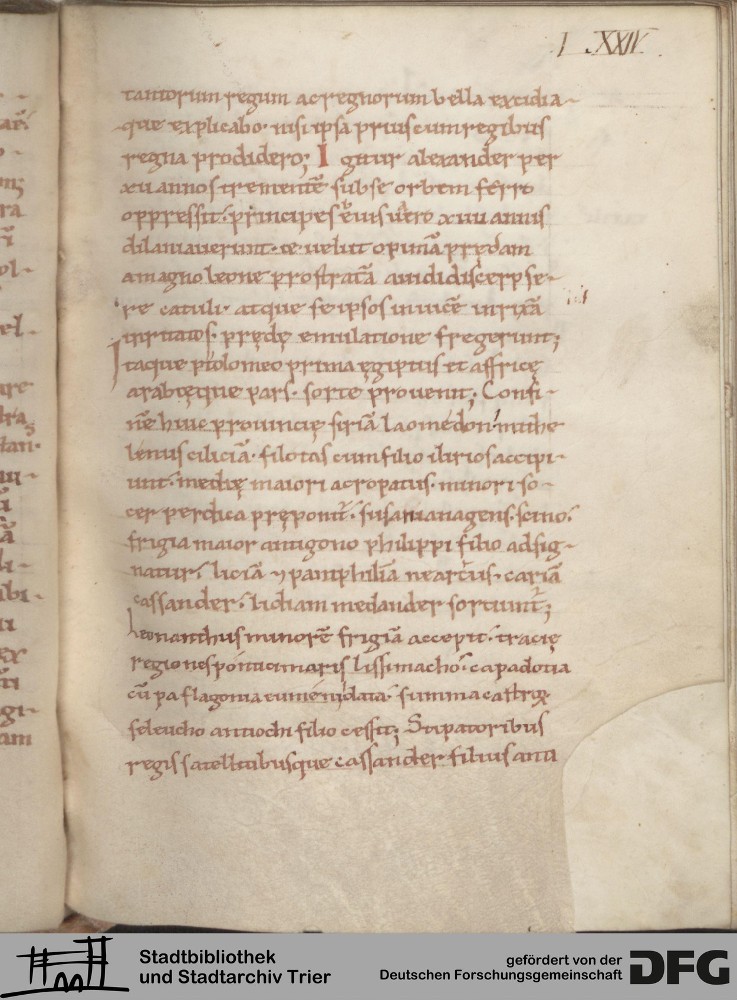 LXXIV
tantorum regum ac regnorum bella excidia-
que explicabo· nisi ipsa prius cum regibus
regna prodidero; Igitur alexander per
xii annos trementē sub se orbem ferro
oppressit· principes ēi uis uero xiiii annis
dilaniauerunt· & uelut opimā prędam
a magno leone prostratā auidi discerpse-
re catuli· atque se ipsos inuicē in rixā
irritatos· prędę emulatione fregerunt;
Itaque ptolomeo prima ęgiptus et affricę
arabięque pars· sorte prouenit; Confi-
nē huic prouincię siriā laomedon· mithe
lenus ciliciā· filotas cum filio ilirios accipi-
unt· medię maiori acropatus· minori so-
cer perdica pręponit̄· susana gens· scino·
frigia maior antigono philippi filio adsig-
natur· liciā ⁊ pamphiliā nearcus· cariā
cassander· lidiam meander sortiunt̄;
leonanthus minorē frigiā accepit· tracię
regiones pontici maris lissimacho· capadotia
cū paflagonia eumeni data· summa castroꝝ
seleucho antiochi filio cessit; Stipatoribus
regis satellitibusque cassander filius anti
Stadtbibliothek
und Stadtarchiv Trier
gefördert von der
Deutschen Forschungsgemeinschaft
DFG